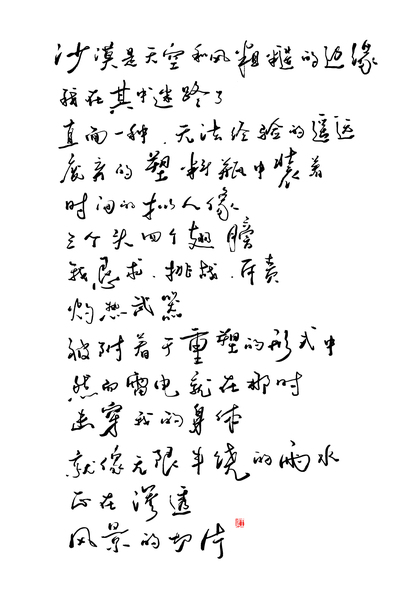 沙漠是天空和风粗糙的边缘
我在其中迷路了
直面一种 无法经验的遥远
废弃的塑料瓶中装着
时间的拟人像
三个头四个翅膀
我恳求、挑战、开卖
灼热武器
被附着于重塑的形式中
然而雷电就在那时
击穿我的身体
就像无限半绕的雨水
正在渗透
风景的切片